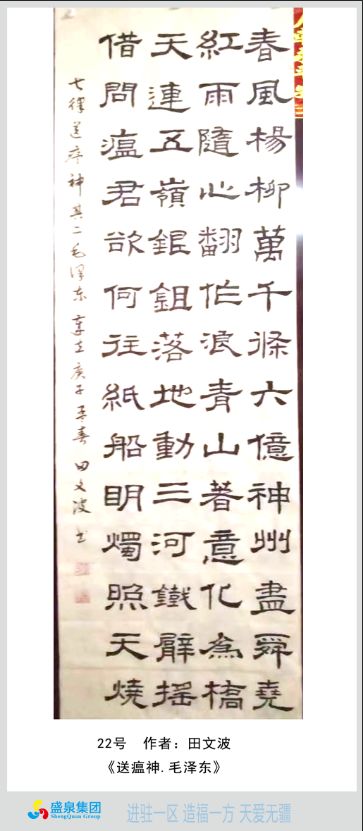 春風楊柳萬千條六億神州盡舜堯
紅雨隨心翻作浪青山着意化為橋
天連五嶺銀鋤落地動三河鐵臂摇
借問瘟君欲何往紙船明燭照天燒
七律送瘟神其二毛泽东 享在庚子孟春 田文波书
22号 作者：田文波
《送瘟神.毛泽东》
盛泉集团
ShengQuan Group
进驻一区 造福一方 天爱无疆